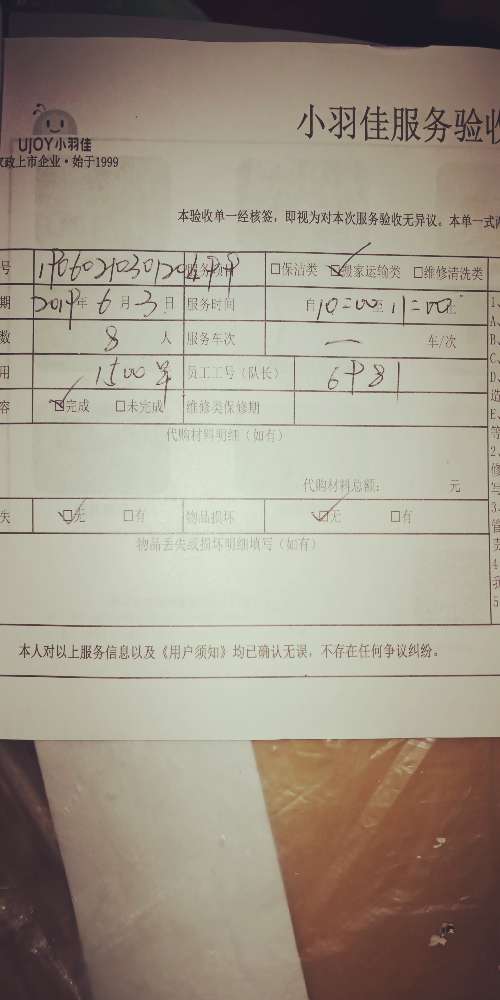 小羽佳服务验收
UJOY小羽佳
家政上市企业·始于1999
本验收单一经核签，即视为对本次服务验收无异议。本单一式两
号 服务项目 □保洁类 ☑搬家运输类 □维修清洗类
期 2019年 6月 3日 服务时间 自10=00至11=00
数 8 人 服务车次 一 车/次
用 1500 员工工号（队长）
容 ☑完成 □未完成 维修类保修期
代购材料明细（如有）
代购材料总额： 元
失 ☑无 □有 物品损坏 ☑无 □有
物品丢失或损坏明细填写（如有）
本人对以上服务信息以及《用户须知》均已确认无误，不存在任何争议纠纷。
1、
A、
B、
C、
D、
造
E、
等
2、
修
写
3、
管
4
我
5